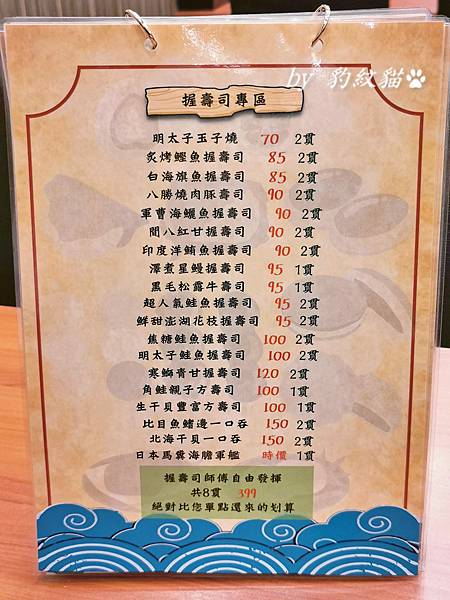 by 豹紋貓
握壽司專區
明太子玉子燒 70 2貫
炙烤鰹魚握壽司 85 2貫
白海旗魚握壽司 85 2貫
八勝燒肉豚壽司 90 2貫
軍曹海鱺魚握壽司 90 2貫
間八紅甘握壽司 90 2貫
印度洋鮪魚握壽司 90 2貫
澤煮星鰻握壽司 95 1貫
黑毛松露牛壽司 95 1貫
超人氣鮭魚握壽司 95 2貫
鮮甜澎湖花枝握壽司 95 2貫
焦糖鮭魚握壽司 100 2貫
明太子鮭魚握壽司 100 2貫
寒鰤青甘握壽司 120 2貫
角鮭親子方壽司 100 1貫
生干貝豐富方壽司 100 1貫
比目魚鰭邊一口吞 150 2貫
北海干貝一口吞 150 2貫
日本馬糞海膽軍艦 時價 1貫
握壽司師傅自由發揮
共8貫 399
絕對比您單點還來的划算